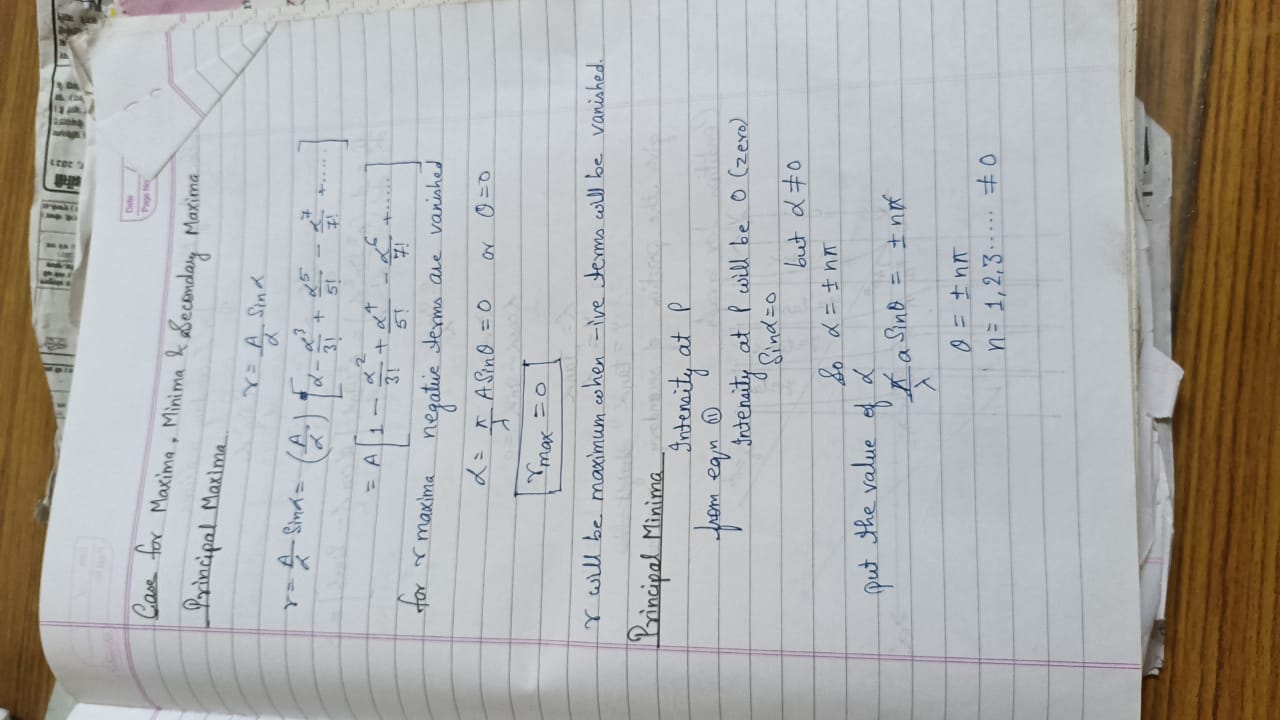 Date
Page No
Case for Maxima, Minima & Secondary Maxima
Principal Maxima
r = A/α Sinα
r = A/α Sinα = (A/α) [α - α³/3! + α⁵/5! - α⁷/7! + .....]
= A [1 - α²/3! + α⁴/5! - α⁶/7! + .....]
for r maxima negative terms are vanished
α = π/λ A Sinθ = 0 or θ = 0
r max = 0
r will be maximum when -ive terms will be vanished.
Principal Minima
Intensity at P
from eqn ⑪
Intensity at P will be 0 (zero)
Sinα = 0 but α ≠ 0
So α = ± nπ
put the value of α
π/λ a Sinθ = ± nπ
θ = ± nπ
n = 1, 2, 3 ..... ≠ 0